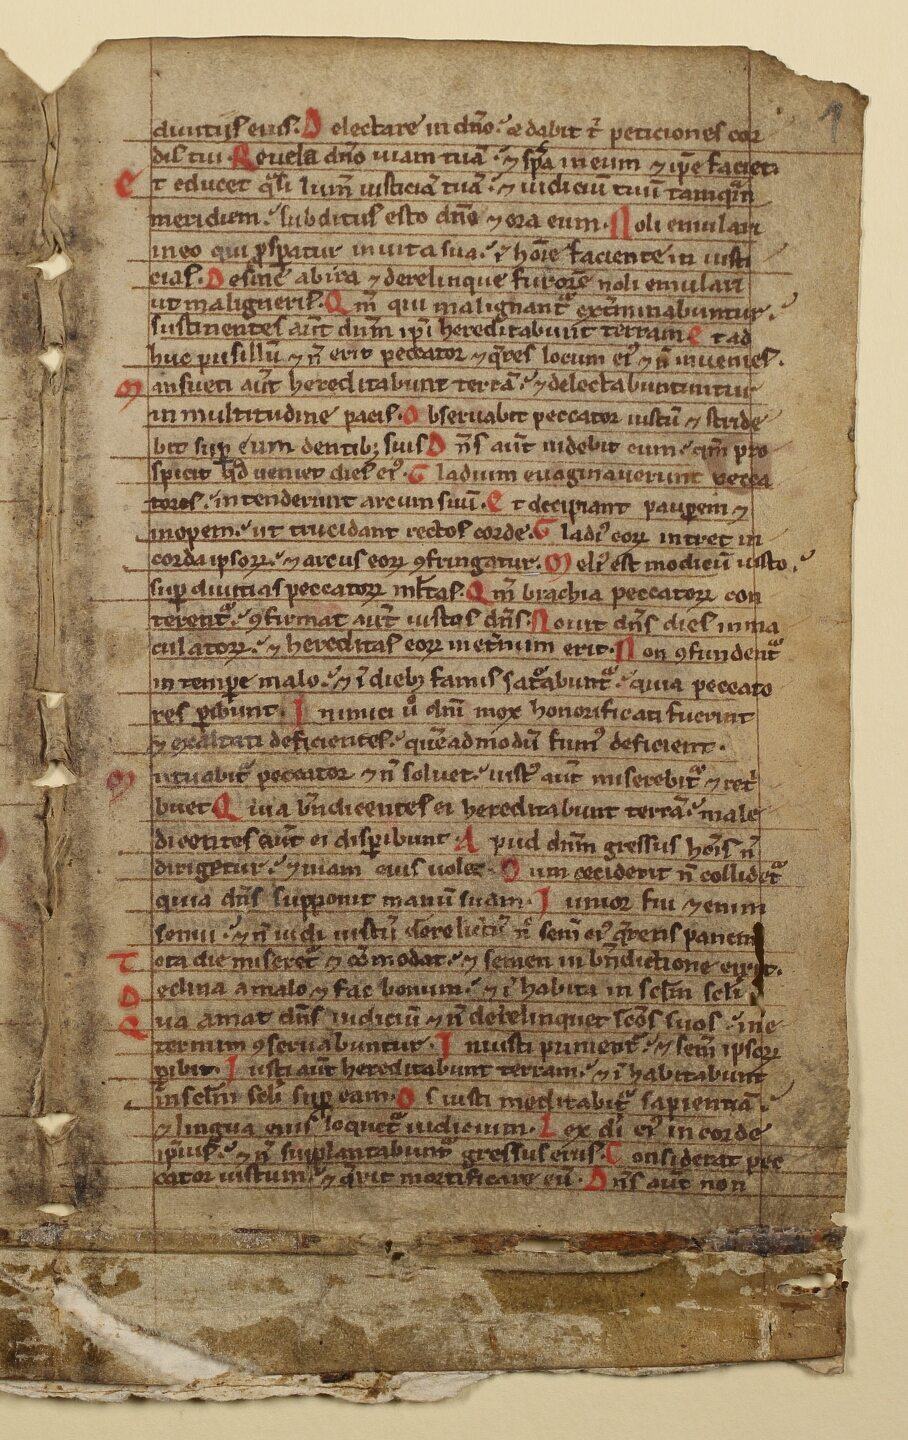 1
diuitijs eius. Delectare in dn̄o. & dabit t̄ peticiones cor
dis tui Reuela dn̄o uiam tuā. ⁊ sp̄a in eum ⁊ ip̄e faciet.
Et educet q̄si lum̄ iusticiā tuā. ⁊ iudiciū tuū tamq̄m
meridiem. subditus esto dn̄o ⁊ ora eum. Noli emulari
in eo qui ꝓspatur in uita sua. ī hoīe faciente in iusti
cias. Desine ab ira ⁊ derelinque furorē noli emulari
ut maligneris. Qm̄ qui malignant᷑ ext̄minabuntur.
sustinentes aut̄ dn̄m ip̄i hereditabunt terram Et ad
huc pusillū ⁊ n̄ erit peccator ⁊ q̄res locum eiꝰ ⁊ n̄ inuenies.
Mansueti aut̄ hereditabunt terrā. ⁊ delectabuntur
in multitudine pacis. Obseruabit peccator iustū ⁊ stride
bit sup̄ eum dentibꝫ suis Dn̄s aut̄ iridebit eum. qm̄ pro
spicit qd̄ ueniet dies eiꝰ. Gladium euaginauerunt pecca
tores. intenderunt arcum suū. Et decipiant paup̄em ⁊
inopem. ut trucidant rectos corde. Gladiꝰ eoꝝ intret in
corda ipsoꝝ. ⁊ arcus eoꝝ ꝯfringatur. Meliꝰ est modicū iusto.
sup̄ diuitias peccatoꝝ ml̄tas. Qm̄ brachia peccatoꝝ con
terent᷑. ꝯfirmat aut̄ iustos dn̄s. Nouit dn̄s dies inma
culatoꝝ. ⁊ hereditas eoꝝ in et̄num erit. Non ꝯfundent᷑
in tempe malo. ⁊ ī diebꝫ famis sat᷑abunt᷑. quia peccato
res ꝑibunt. Inimici u̇ dn̄i mox honorificati fuerint
⁊ exaltati deficientes. quēadmodū fumꝰ deficient.
Mutuabit᷑ peccator ⁊ n̄ soluet. iustꝰ aut̄ miserebit᷑ ⁊ ret̄
buet Quia bn̄dicentes ei hereditabunt terrā. male
dicentes aut̄ ei disꝑibunt. Apud dn̄m gressus hoīs n̄
dirigetur. ⁊ uiam eius uolet. Cum ceciderit n̄ collidet᷑
quia dn̄s supponit manū suam. Iunior fui ⁊ enim
senui. ⁊ n̄ uidi iustū derelictū n̄ sem̄ eiꝰ q̄rens panem
Tota die miseret᷑ ⁊ cōmodat. ⁊ semen in bn̄dictione erit.
Declina a malo ⁊ fac bonum. ⁊ ī habita in sclm̄ scli
Quia amat dn̄s iudiciū ⁊ n̄ derelinquet sc̄os suos. in e
ternum ꝯseruabuntur. Iniusti punient᷑. ⁊ sem̄ ipsoꝝ
ꝑibit. Iusti aut̄ hereditabunt terram. ⁊ ī habitabunt
in sclm̄ scli sup̄ eam. Os iusti meditabit᷑ sapientiā.
⁊ lingua eius loquet᷑ iudicium. Lex dī eiꝰ in corde
ip̄ius. ⁊ n̄ supplantabunt᷑ gressus eius. Considerat pec
cator iustum. ⁊ q̄rit mortificare eū. Dn̄s aut̄ non